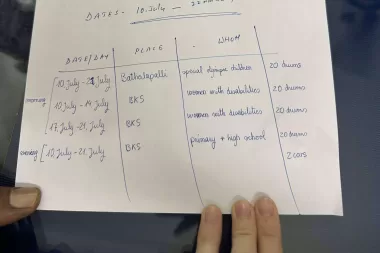 DATES - 10. July -
DATE/DAY PLACE - WHOM
10. July - 21. July Batthalapalli special olympic children 20 drums
morning 10. July - 14. July BKS women with disabilities 20 drums
17. July - 21. July BKS women with disabilities 20 drums
morning 10. July - 21. July BKS primary + high school 20 drums
2 cars